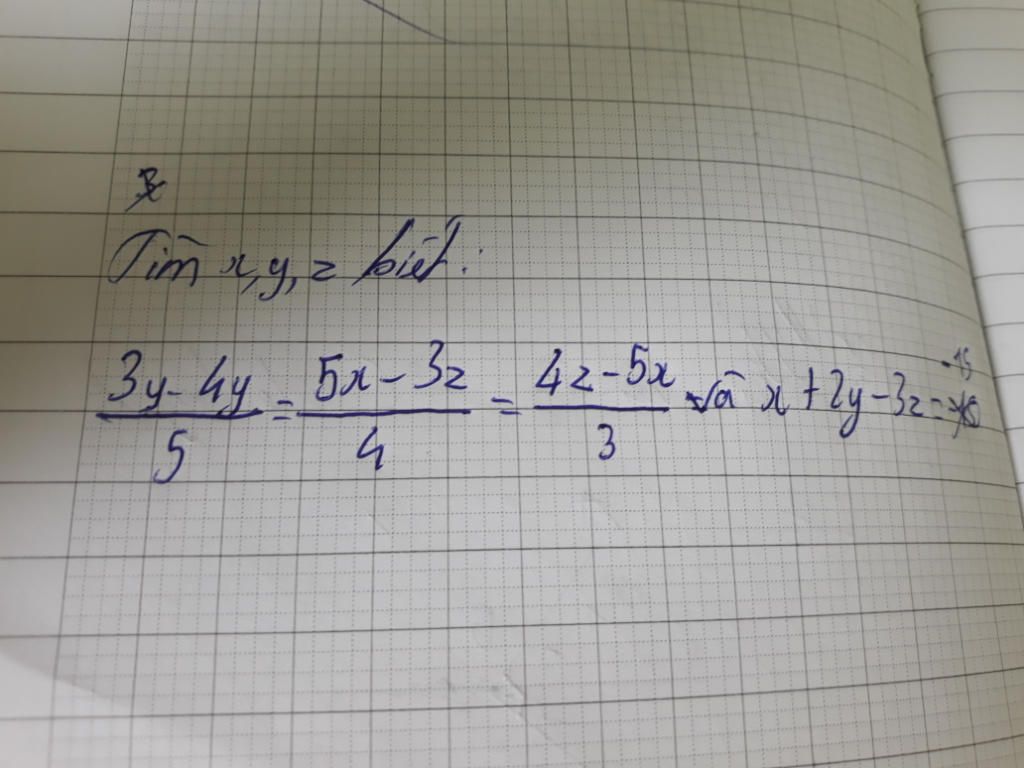 Tìm x, y, z biết:
3y - 4y / 5 = 5x - 3z / 4 = 4z - 5x / 3 và x + 2y - 3z = -15